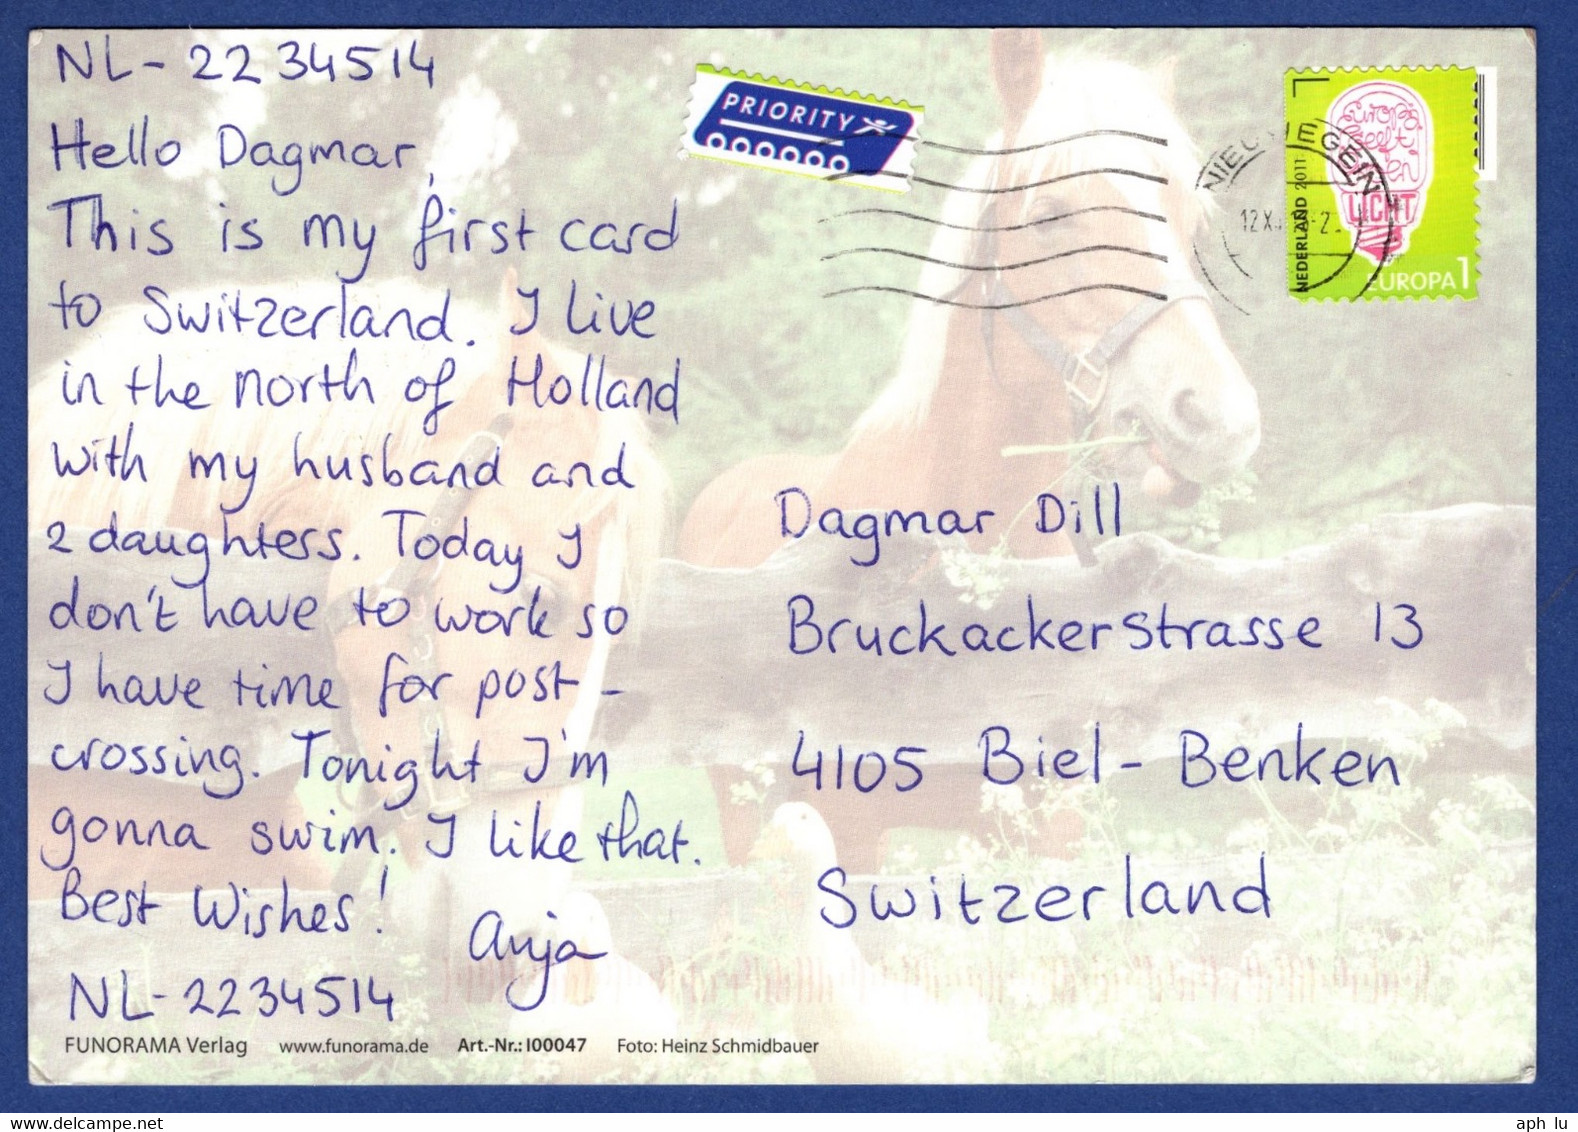 NL-2234514
Hello Dagmar,
This is my first card
to Switzerland. I live
in the north of Holland
with my husband and
2 daughters. Today I
don't have to work so
I have time for post-
crossing. Tonight I'm
gonna swim. I like that.
Best Wishes!
Anja
NL-2234514
FUNORAMA Verlag www.funorama.de Art.-Nr.: I00047 Foto: Heinz Schmidbauer
PRIORITY
NIEUWEGEIN
NEDERLAND 2011
Europa
geeft
LICHT
EUROPA 1
Dagmar Dill
Bruckackerstrasse 13
4105 Biel-Benken
Switzerland
www.delcampe.net
aph_lu